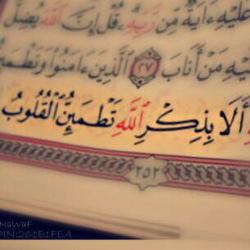 عَلَيْهِ ءَايَةٌ مِّن رَّبِّهِۦ قُلْ إِنَّ ٱللَّهَ يُضِلُّ
مَنْ أَنَابَ ٢٧ ٱلَّذِينَ ءَامَنُوا۟ وَتَطْمَئِنُّ
أَلَا بِذِكْرِ ٱللَّهِ تَطْمَئِنُّ ٱلْقُلُوبُ
٢٥٢
Nawaf